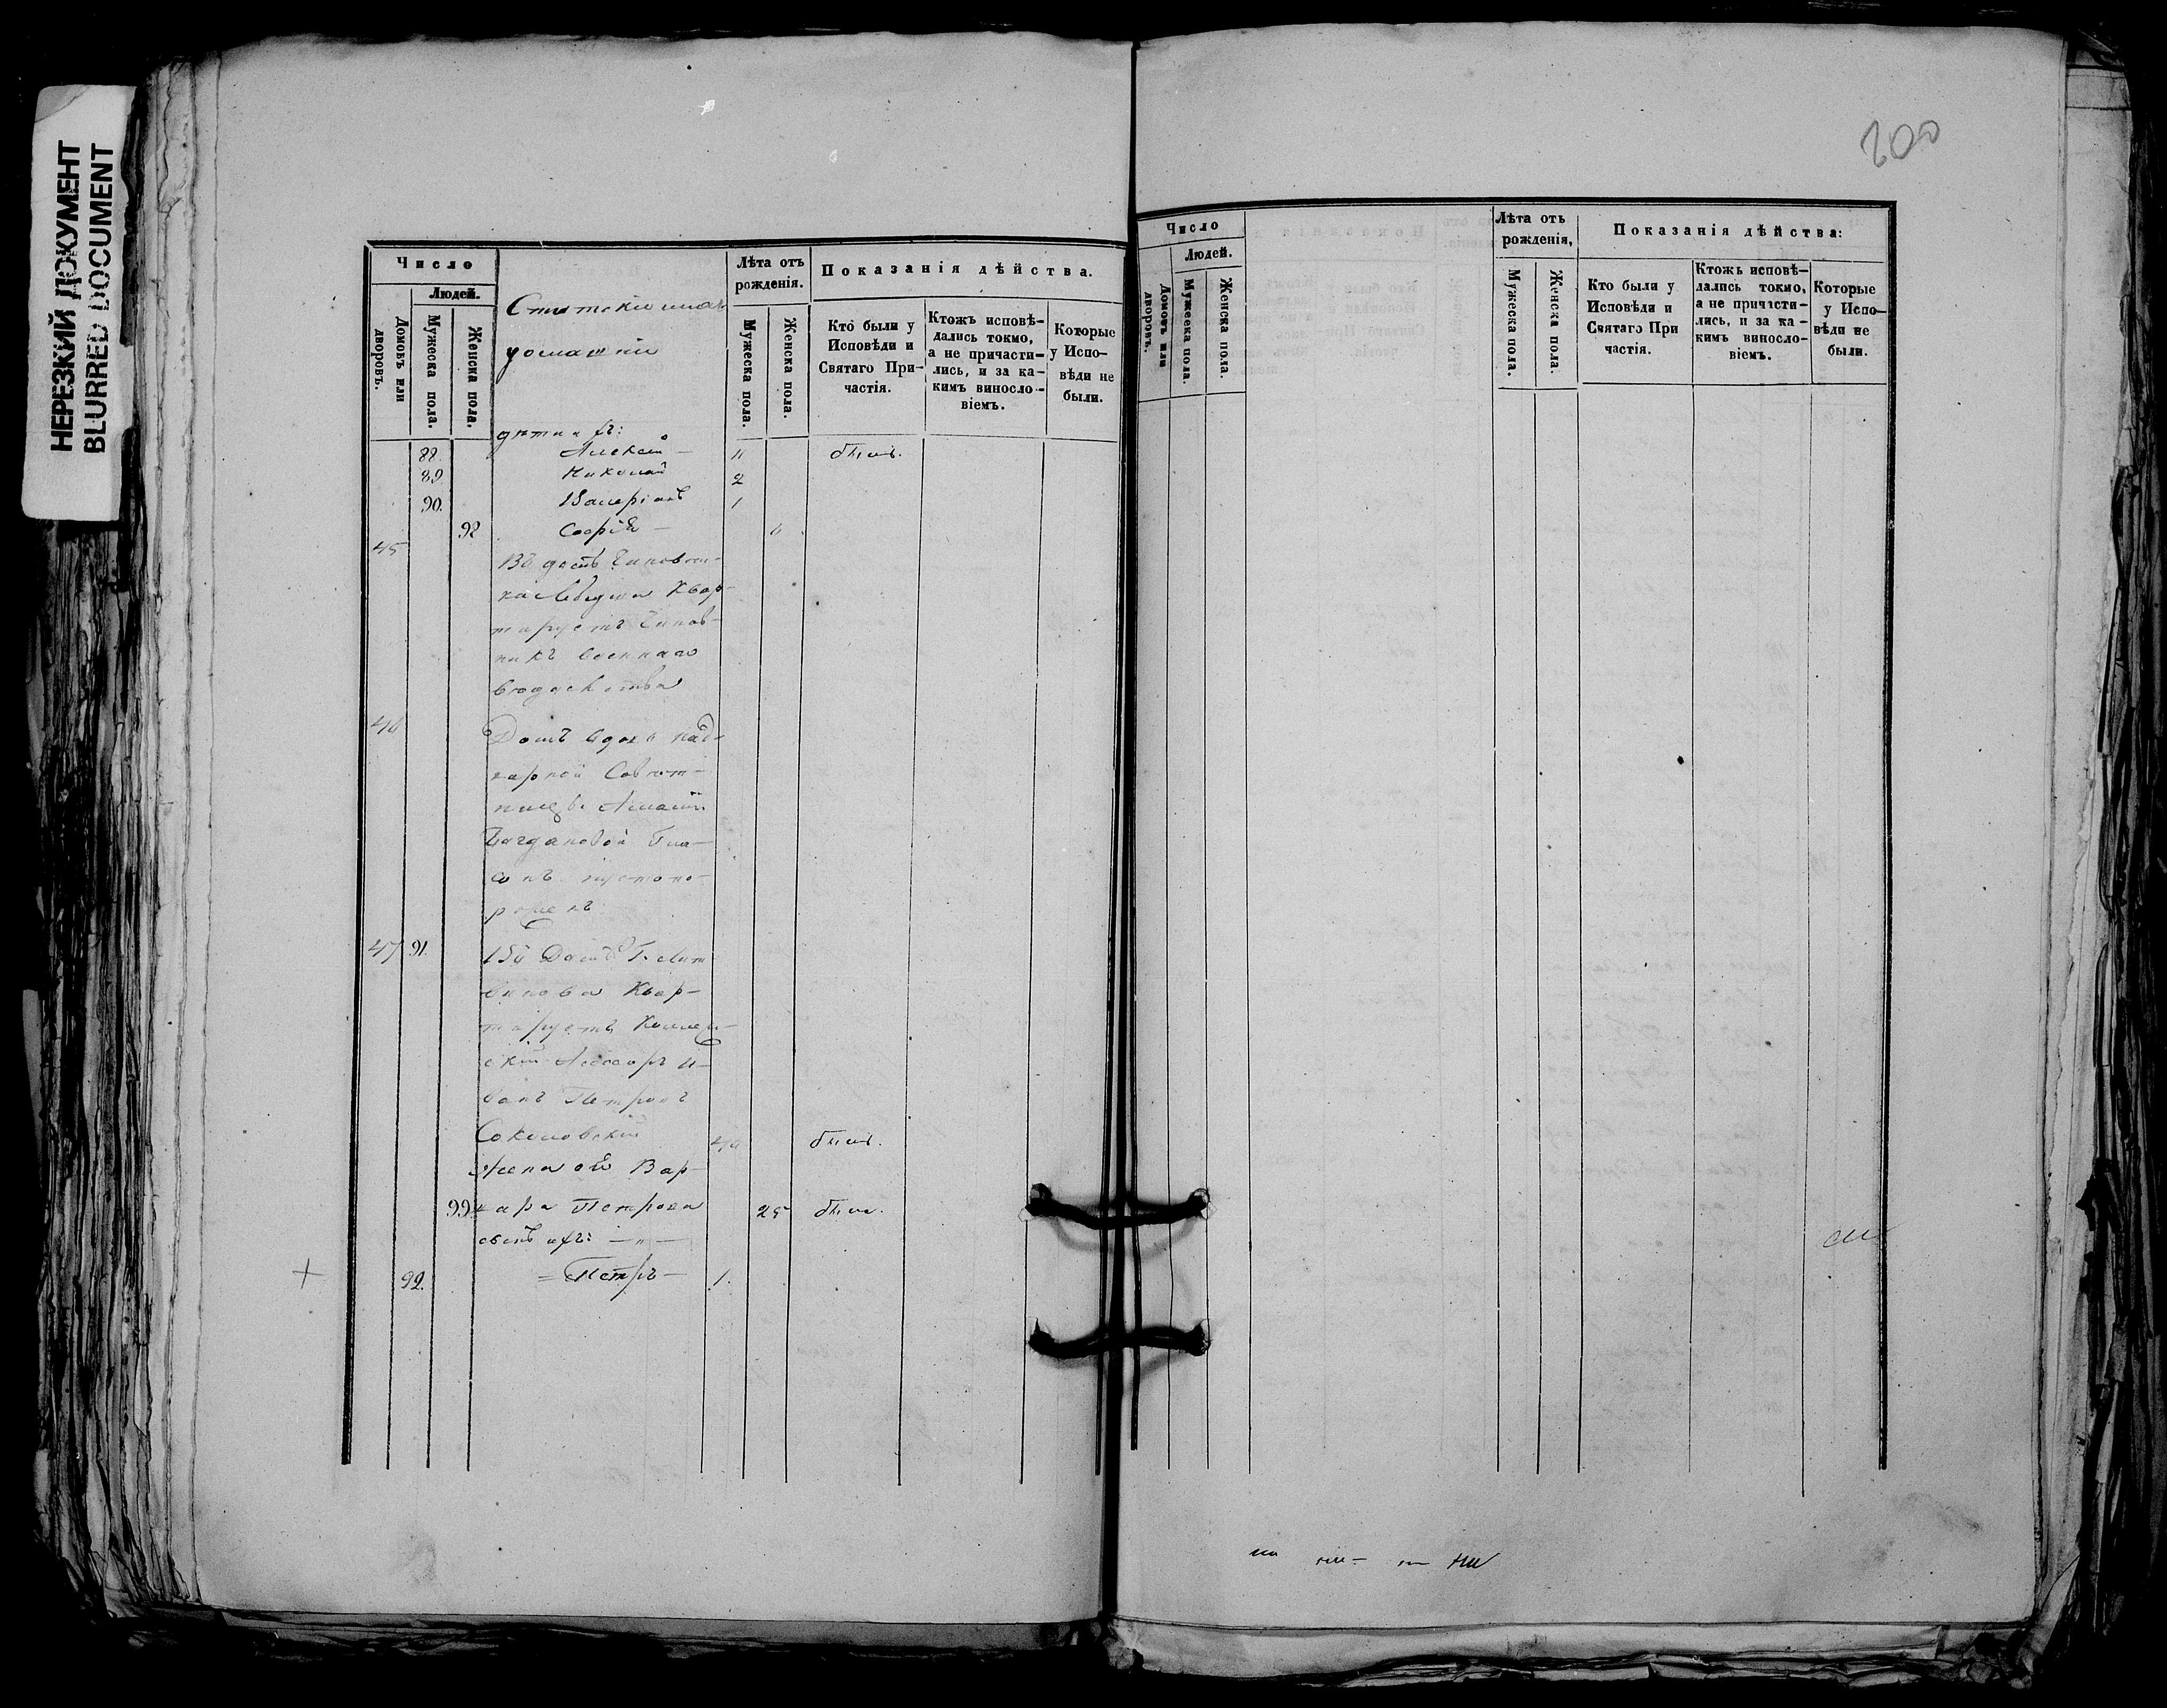 НЕРЕЗКИЙ ДОКУМЕНТ
BLURRED DOCUMENT
Число
Людей.
Домовъ или дворовъ.
Мужеска пола.
Женска пола.
Статскіи и их
домашніи
Лѣта отъ рожденія.
Мужеска пола.
Женска пола.
Показанія дѣйства.
Кто были у Исповѣди и Святаго Причастія.
Ктожъ исповѣдались токмо, а не причастились, и за какимъ винословіемъ.
Которые у Исповѣди не были.
дѣти ихъ:
88. Алексѣй — 11 былъ.
89. Николай 2
90. Валеріанъ 1
92 Софія — 6
45
Въ домѣ Чиновни-
ка Квар-
тируетъ Чинов-
никъ военнаго
вѣдомства
46
Домъ вдовы над-
ворной Совѣт-
ницы
Богдановой
пустопо-
рожен
47 91. Въ Домѣ Г. Лит-
винова Квар-
тируетъ Коллеж-
скій Ассесоръ И-
ванъ Петровъ
Соколовскій былъ.
Жена его Вар-
99 вара Петрова 25 была.
сынъ ихъ: — " —
+ 92. = Петръ — 1.
200
Число
Людей.
Домовъ или дворовъ.
Мужеска пола.
Женска пола.
Лѣта отъ рожденія,
Мужеска пола.
Женска пола.
Показанія дѣйства:
Кто были у Исповѣди и Святаго При частія.
Ктожъ исповѣдались токмо, а не причастились, и за какимъ винословіемъ.
Которые у Исповѣди не были.